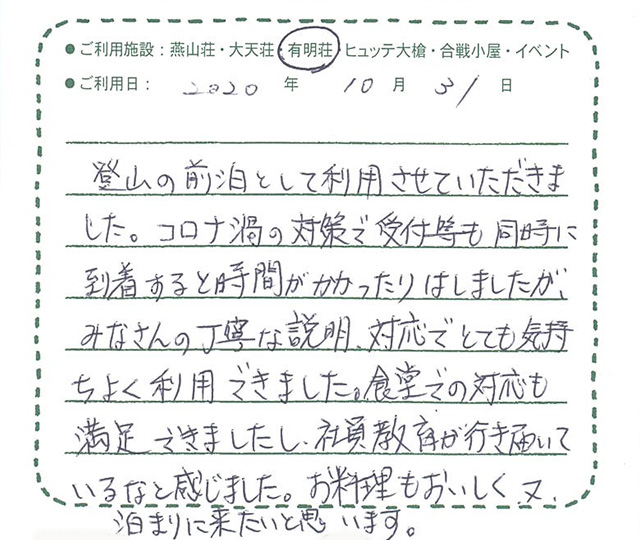 ●ご利用施設：燕山荘・大天荘・有明荘・ヒュッテ大槍・合戦小屋・イベント
●ご利用日： 2020 年 10 月 31 日
登山の前泊として利用させていただきま
した。コロナ渦の対策で受付等も同時に
到着すると時間がかかったりはしましたが、
みなさんの丁寧な説明、対応でとても気持
ちよく利用できました。食堂での対応も
満足できましたし、社員教育が行き届いて
いるなと感じました。お料理もおいしく又、
泊まりに来たいと思います。